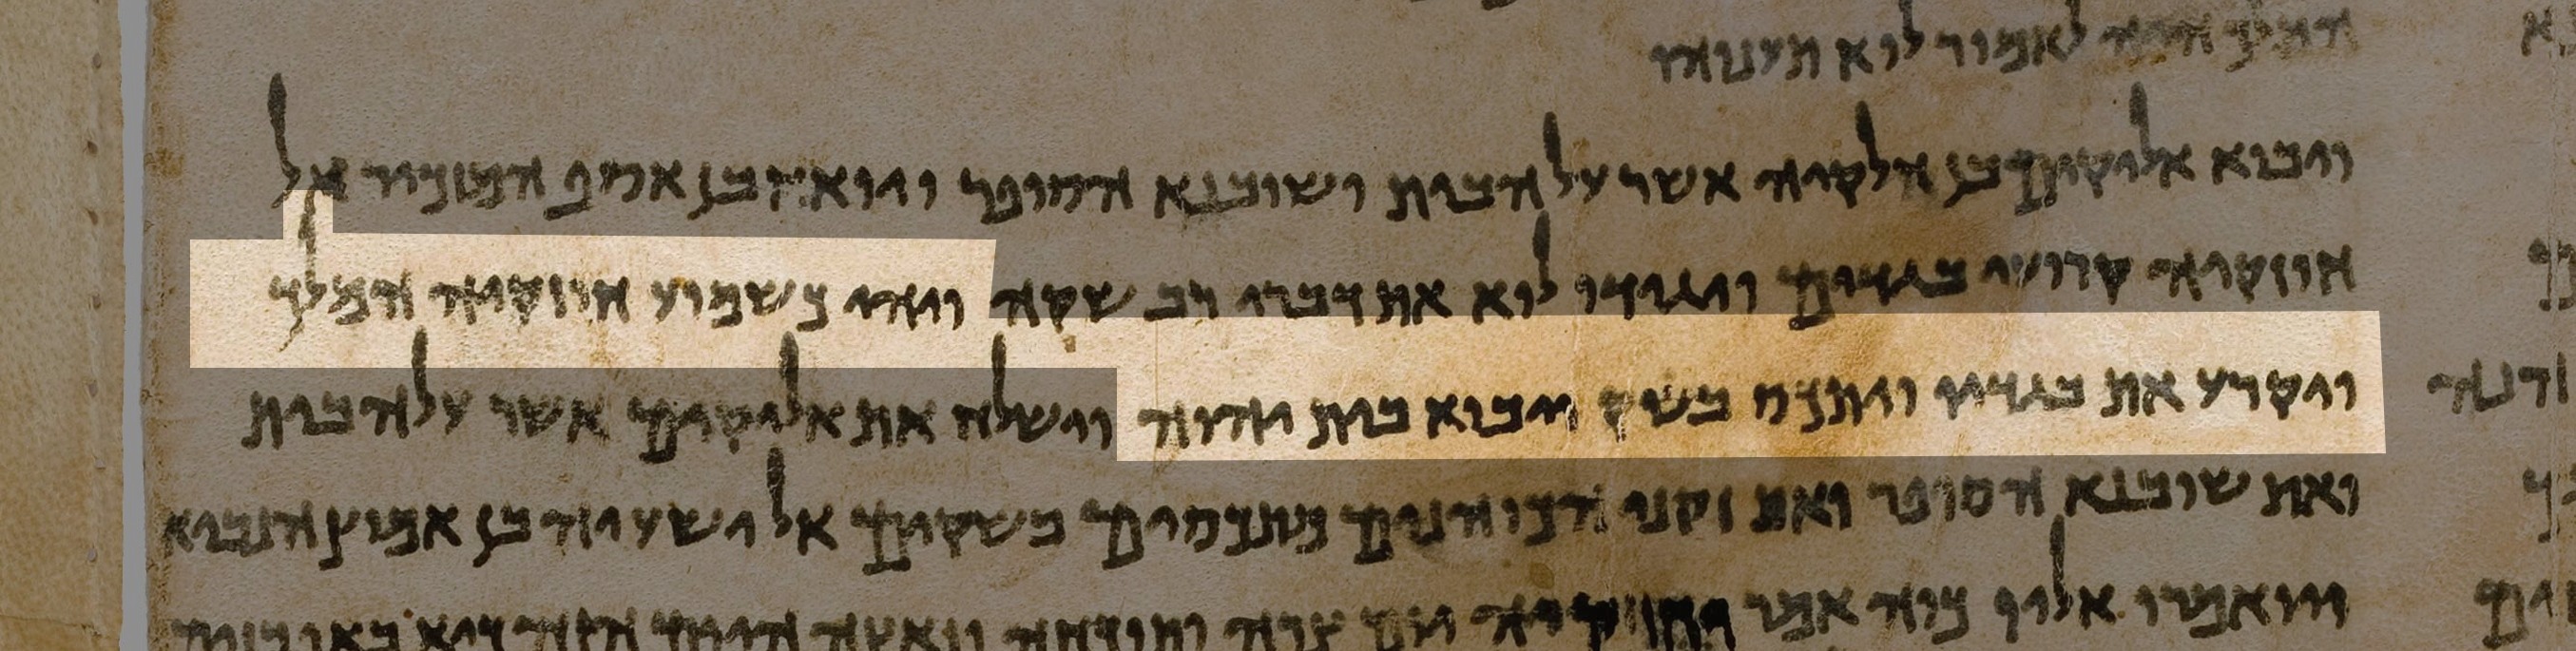 המלך היאה לאמור לוא תענוהו
ויבוא אליקים בן חלקיה אשר על הבית ושובנא הסופר ויואח בן אסף המזכיר אל
חוזקיה קרועי בגדים ויגידו לוא את דברי רב שקה ויהי כשמוע חוזקיה המלך
ויקרע את בגדיו ויתכס בשק ויבוא בית יהוה וישלח את אליקים אשר על הבית
ואת שובנא הסופר ואת זקני הכוהנים מתכסים בשקים אל ישעיה בן אמוץ הנביא
ויואמרו אליו כוה אמר חוזקיה יום צרה ותוכחה ונאצה היום הזה כיא באו